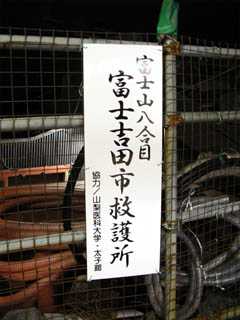 富士山八合目
富士吉田市救護所
協力／山梨医科大学・太子館